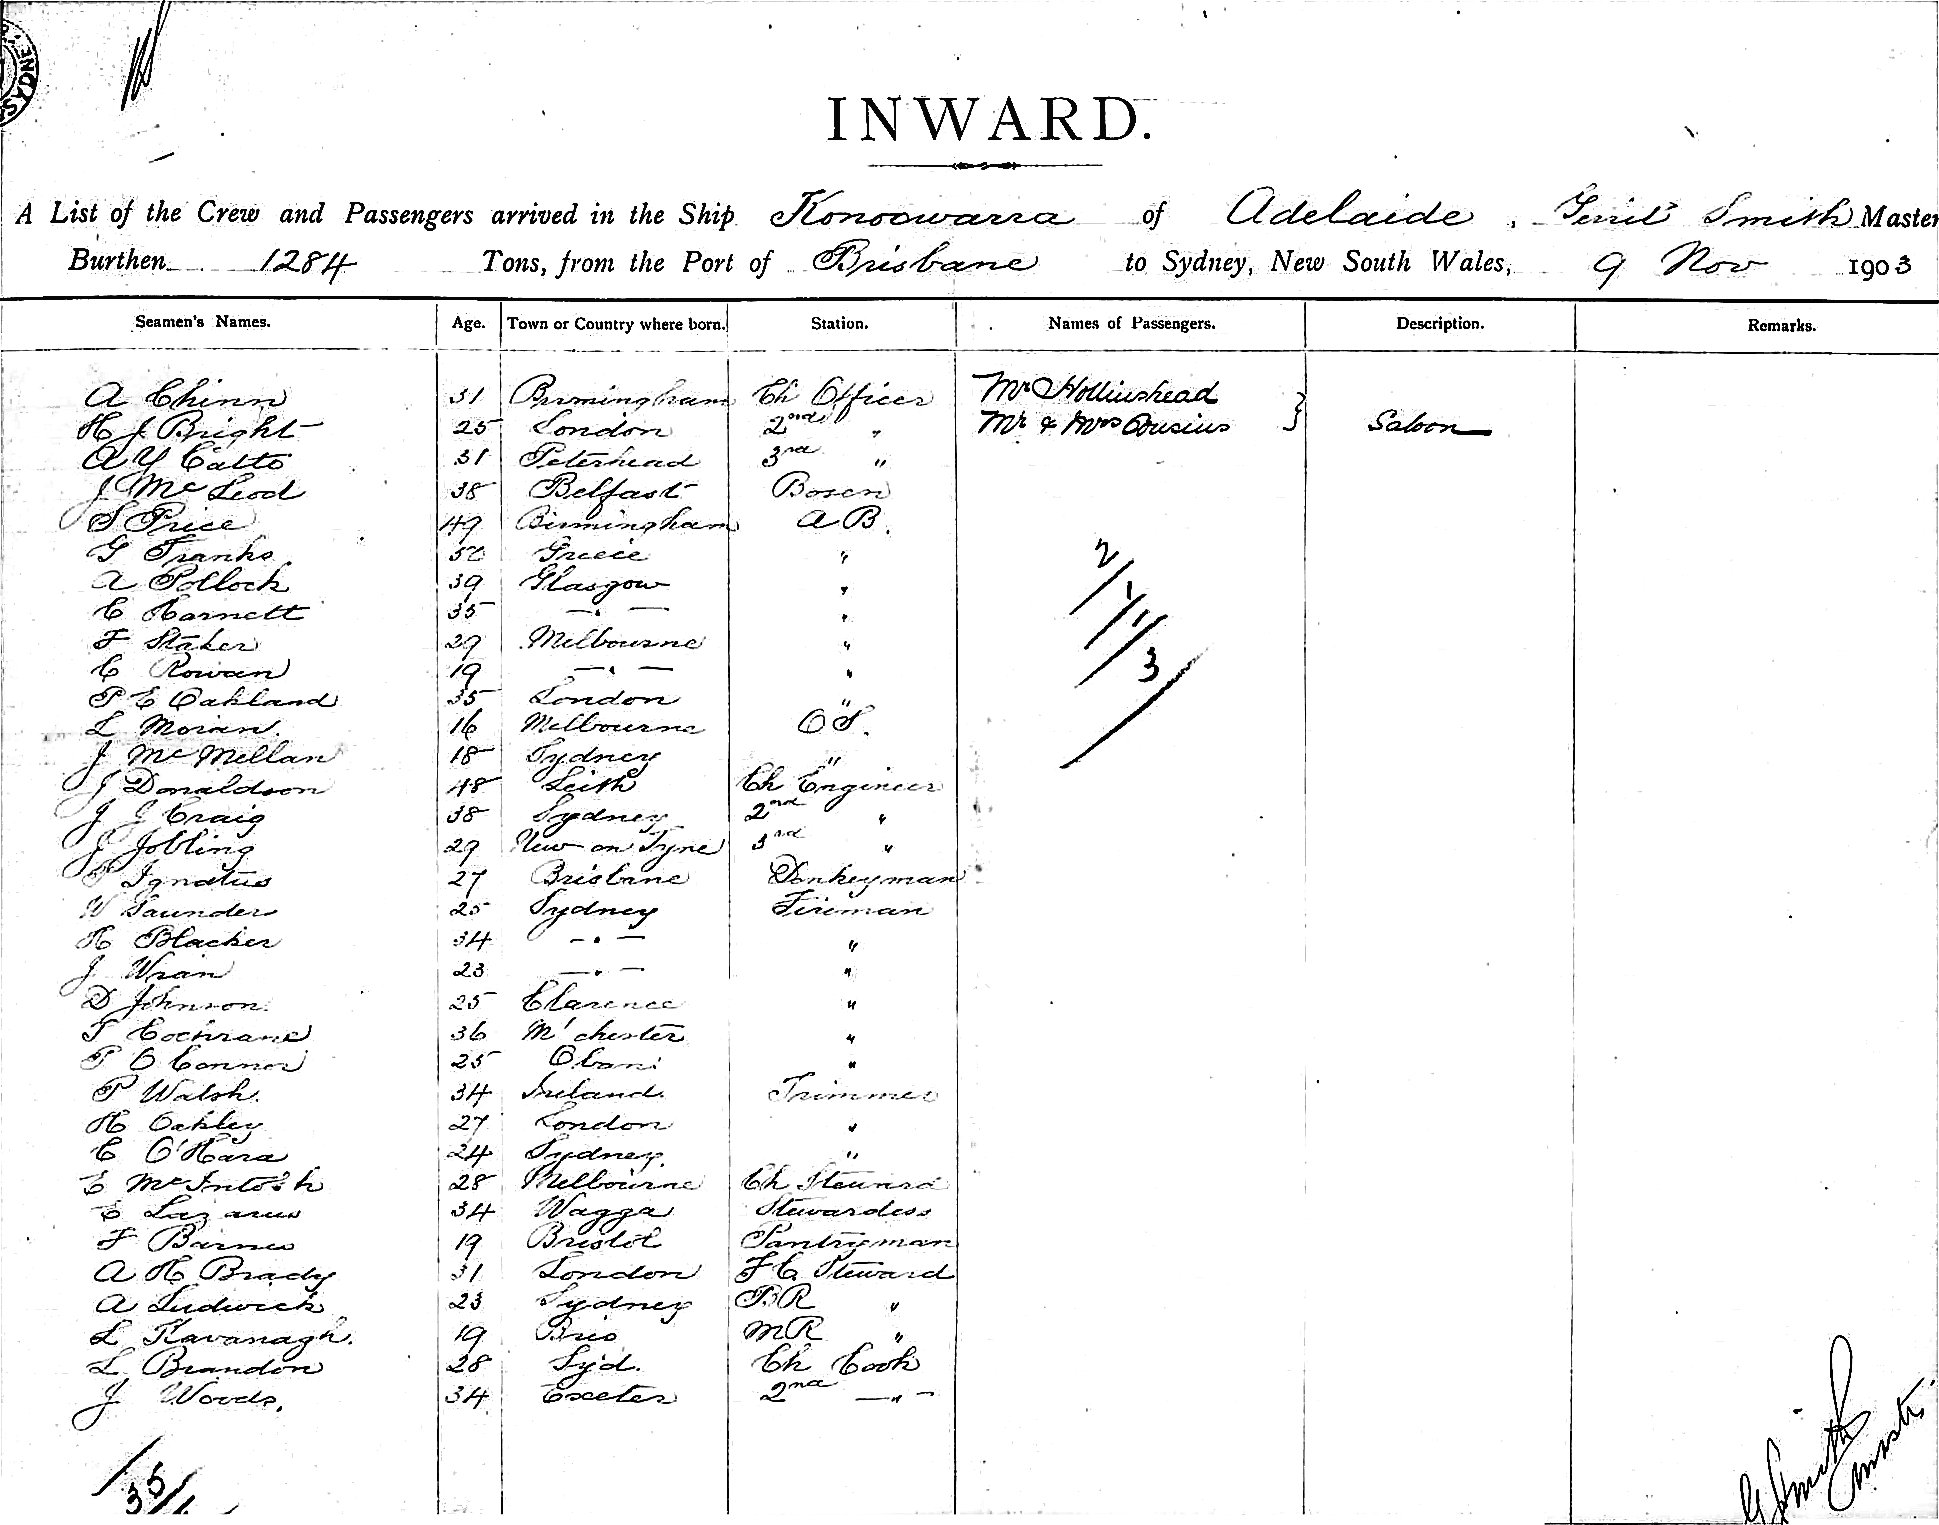 INWARD.
A List of the Crew and Passengers arrived in the Ship Konoowarra of Adelaide, Gerrit Smith Master
Burthen 1284 Tons, from the Port of Brisbane to Sydney, New South Wales, 9 Nov 1903
Seamen's Names. Age. Town or Country where born. Station. Names of Passengers. Description. Remarks.
A Chinn 31 Birmingham Ch Officer Mr Hollinshead
H J Bright 25 London 2nd " Mr & Mrs Cousins } Saloon
A Y Catto 31 Peterhead 3rd "
J McLeod 38 Belfast Bosen
S Price 49 Birmingham A B.
G Franks 50 Greece "
A Pollock 39 Glasgow "
C Harnett 35 — " — "
F Staker 29 Melbourne "
C Rowan 19 — " — "
P E Oakland 35 London "
L Moran. 16 Melbourne O S.
J McMellan 18 Sydney "
J Donaldson 48 Leith Ch Engineer
J J Craig 38 Sydney 2nd "
J Jobling 29 New on Tyne 3rd "
P Ignatus 27 Brisbane Donkeyman
W Saunder 25 Sydney Fireman
H Blacker 34 — " — "
J Wran 23 — " — "
D Johnson. 25 Clarence "
T Cochrane 36 M'chester "
P O Connor 25 Oban "
P Walsh. 34 Ireland. Trimmer
H Oakley 27 London "
C O'Hara 24 Sydney. "
E McIntosh 28 Melbourne Ch Steward
E Lazarus 34 Wagga Stewardess
F Barnes 19 Bristol Pantryman
A H Brady 31 London F C Steward
A Ludwick 23 Sydney B R "
L Kavanagh. 19 Bris M R "
L Brandon 28 Syd. Ch Cook
J Woods. 34 Exeter 2nd — " —
2/1/1/3
35/1
G Smith